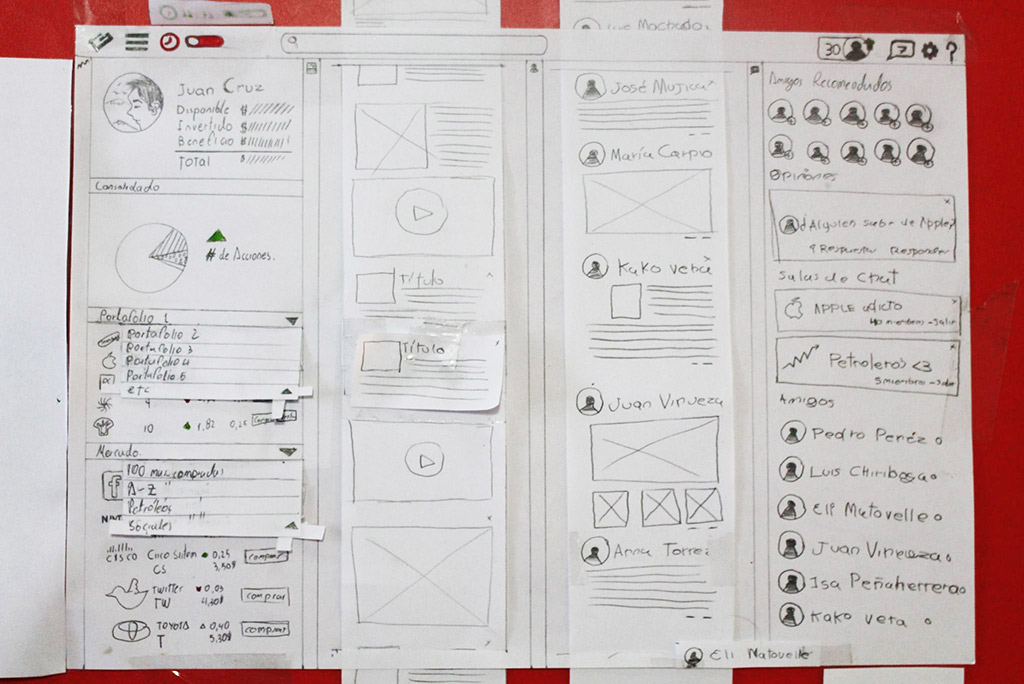 30
?
Juan Cruz
Disponible $
Invertido $
Beneficio $
Total $
Consolidado
# de Acciones.
Portafolio 1
Portafolio 2
Portafolio 3
Portafolio 4
Portafolio 5
etc
4
10 1,82 0,25
Mercado
f
100 mas comprados
A-Z " "
Petróleos
Sociales " "
CISCO Cisco Sistem 0,25 comprar
CS 3,50$
Twitter 0,05 comprar
TW 4,30$
TOYOTA 0,40 comprar
T 5,30$
Título
Título
Machado
José Mujica
María Carpio
Kako vera
Juan Virueza
Anna Torrez
Eli Matovelle
Amigos Recomendados
Opiniones
¿Alguien sabe de Apple?
9 Respuestas Responder
Salas de Chat
APPLE adicto
40 miembros - Salir
Petroleros <3
5 miembros - Salir
Amigos
Pedro Peréz
Luis Chiriboga
Eli Matovelle
Juan Virueza
Isa Peñaherrera
Kako vera